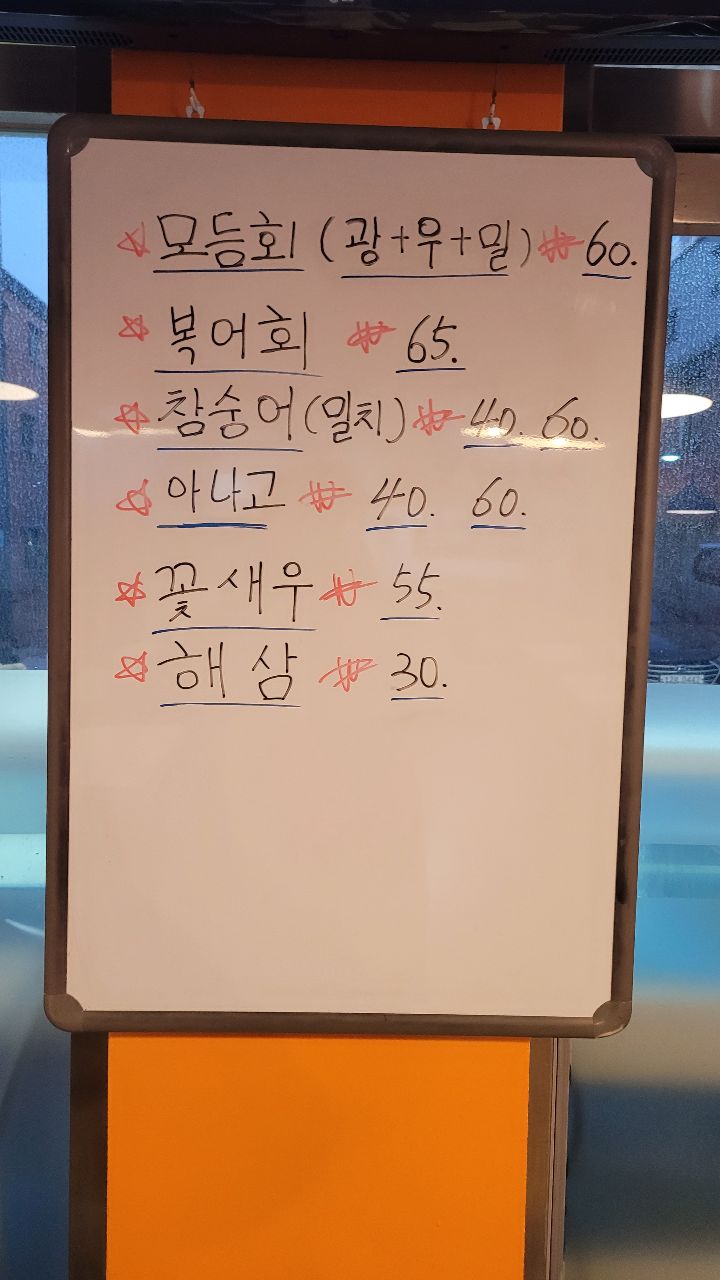 ☆ 모듬회 (광+우+밀) ₩ 60.
☆ 복어회 ₩ 65.
☆ 참숭어(밀치) ₩ 40. 60.
☆ 아나고 ₩ 40. 60.
☆ 꽃새우 ₩ 55.
☆ 해삼 ₩ 30.